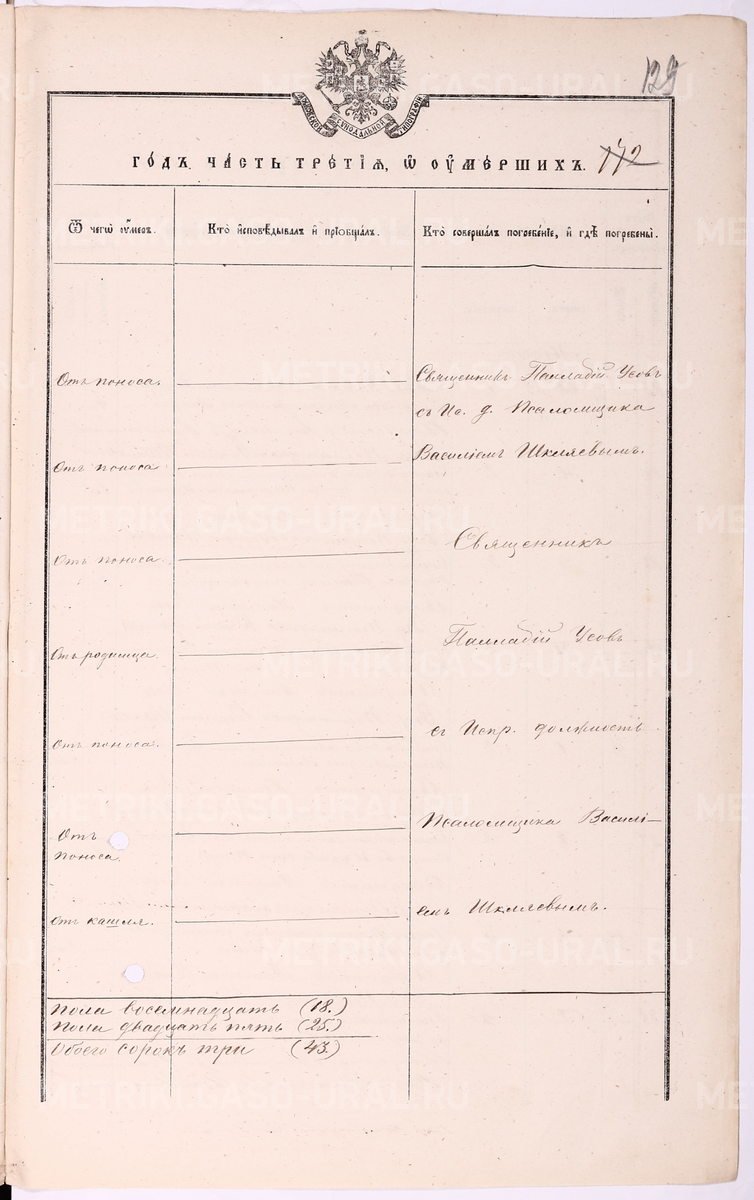 129
МОСКОВСКОЙ СѴНОДАЛЬНОЙ ТИПОГРАФІИ
ГО́ДЪ. ЧА́СТЬ ТРЕ́ТІѦ, Ѡ҆ ОУ҆МЕ́РШИХЪ. 172
Ѿ чегѡ̀ ᲂу҆́меръ.
Кто̀ и҆сповѣ́дывалъ и҆ прїѡбща́лъ.
Кто̀ соверша́лъ погребе́нїе, и҆ гдѣ̀ погребены̀.
Отъ поноса.
Священникъ Палладій Усовъ
съ Ис. д. Псаломщика
Василіемъ Шкляевымъ.
Отъ поноса
Отъ поноса.
Священникъ
Отъ родимца.
Палладій Усовъ
Отъ поноса.
съ Испр. должность
Отъ
поноса.
Псаломщика Василі-
емъ Шкляевымъ.
Отъ кашля.
пола восемнадцать (18.)
пола двадцать пять (25.)
Обоего сорокъ три (43.)
METRIKI.GASO-URAL.RU